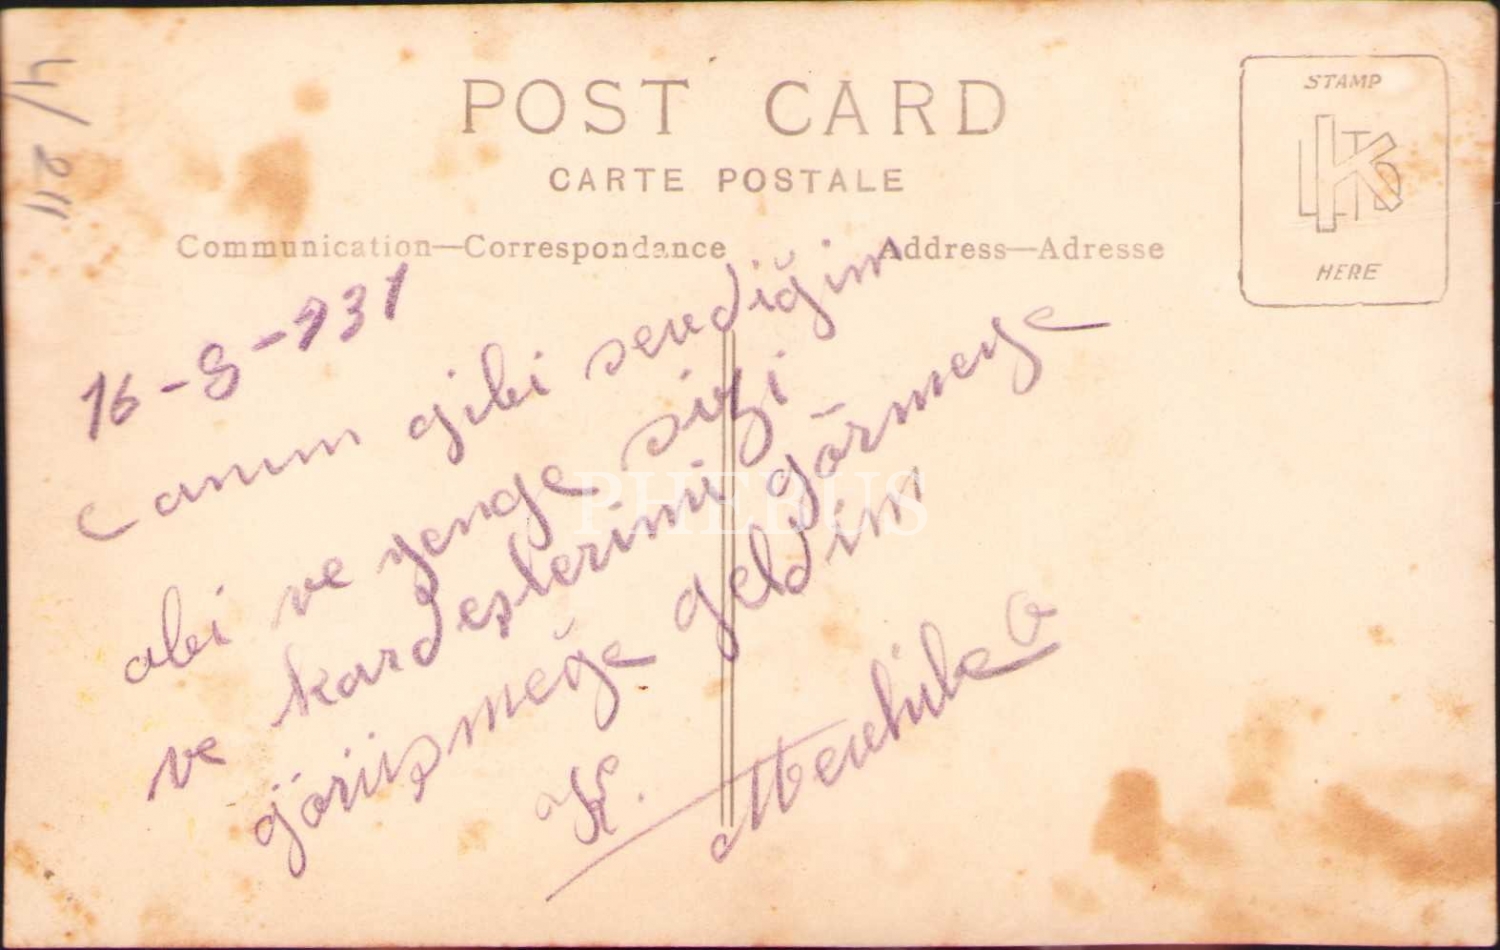 POST CARD
CARTE POSTALE
Communication—Correspondance
Address—Adresse
STAMP
HERE
16-8-931
Canım gibi sevdiğim
abi ve yenge sizi
ve kardeşlerimi görmeye
görüşmeğe geldim
K. Mevhibe
PHEBUS